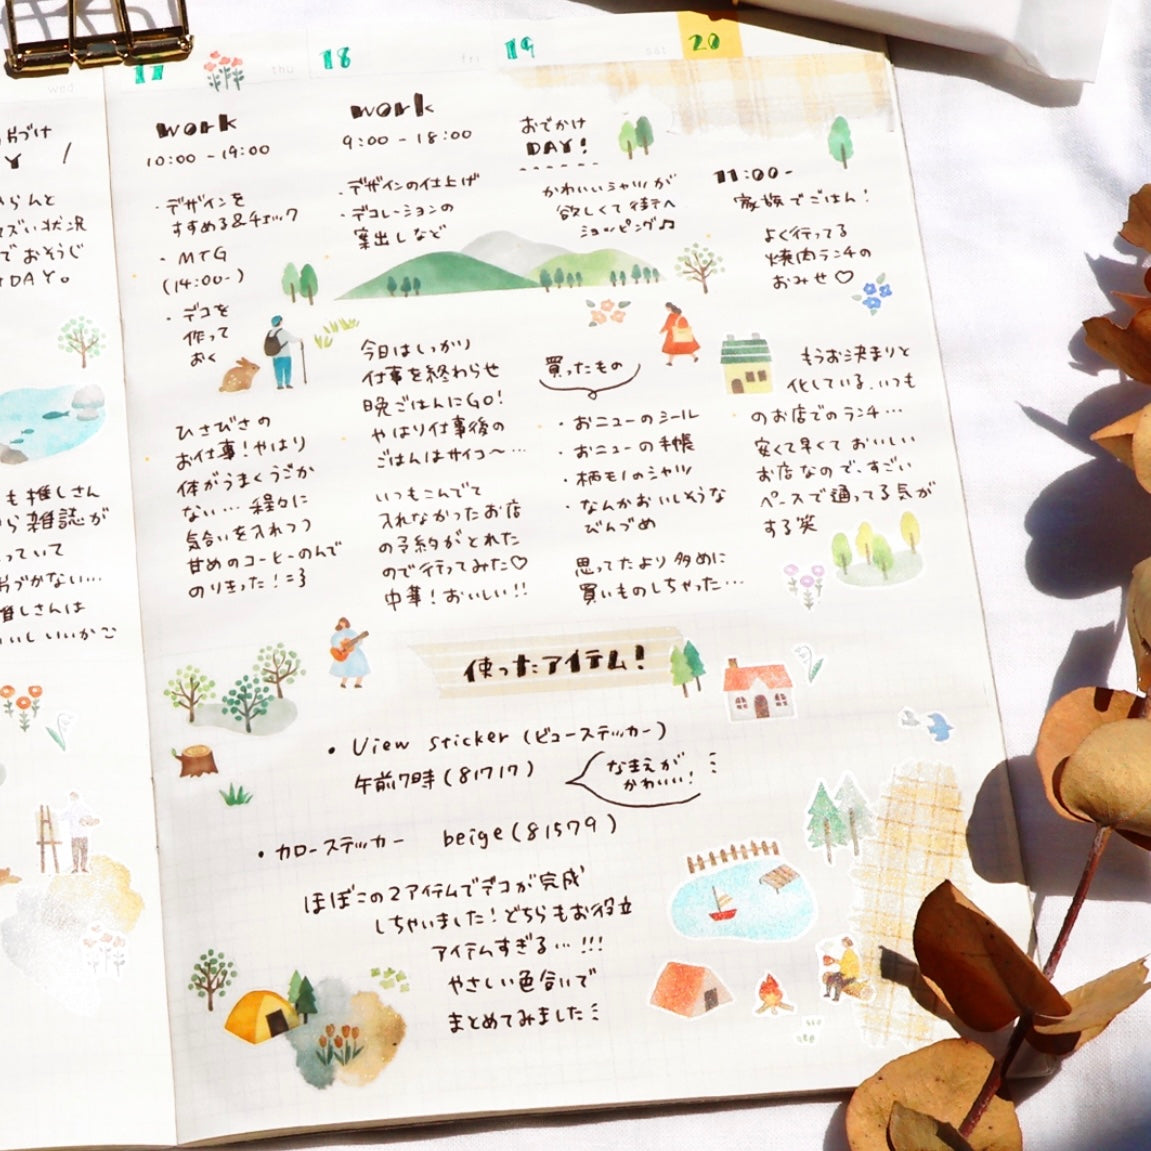 wed
片づけ
Y !
らんと
マズい状況
でおそうじ
DAY。
も推しさん
ら雑誌が
っていて
片づかない…
推しさんは
17
thu
work
10:00 - 19:00
・デザインを
すすめる&チェック
・MTG
(14:00-)
・デコを
作って
おく
ひさびさの
お仕事!やはり
体がうまくうごか
ない… 程々に
気合いを入れつつ
甘めのコーヒーのんで
のりきった!=3
18
fri
work
9:00 - 18:00
・デザインの仕上げ
・デコレーションの
案出しなど
今日はしっかり
仕事を終わらせ
晩ごはんにGO!
やはり仕事後の
ごはんはサイコ〜…
いつもこんでて
入れなかったお店
の予約がとれた
ので行ってみた♡
中華!おいしい!!
19
sat
おでかけ
DAY!
かわいいシャツが
欲しくて街へ
ショッピング♫
買ったもの
・おニューのシール
・おニューの手帳
・柄モノのシャツ
・なんかおいしそうな
びんづめ
思ってたより多めに
買いものしちゃった…
20
11:00-
家族でごはん!
よく行ってる
焼肉ランチの
おみせ♡
もうお決まりと
化している、いつも
のお店でのランチ…
安くて早くておいしい
お店なので、すごい
ペースで通ってる気が
する笑
使ったアイテム!
・View sticker (ビューステッカー)
午前7時(81717)
なまえが
かわいい!
・カローステッカー beige(81579)
ほぼこの2アイテムでデコが完成
しちゃいました!どちらもお役立
アイテムすぎる…!!!
やさしい色合いで
まとめてみました